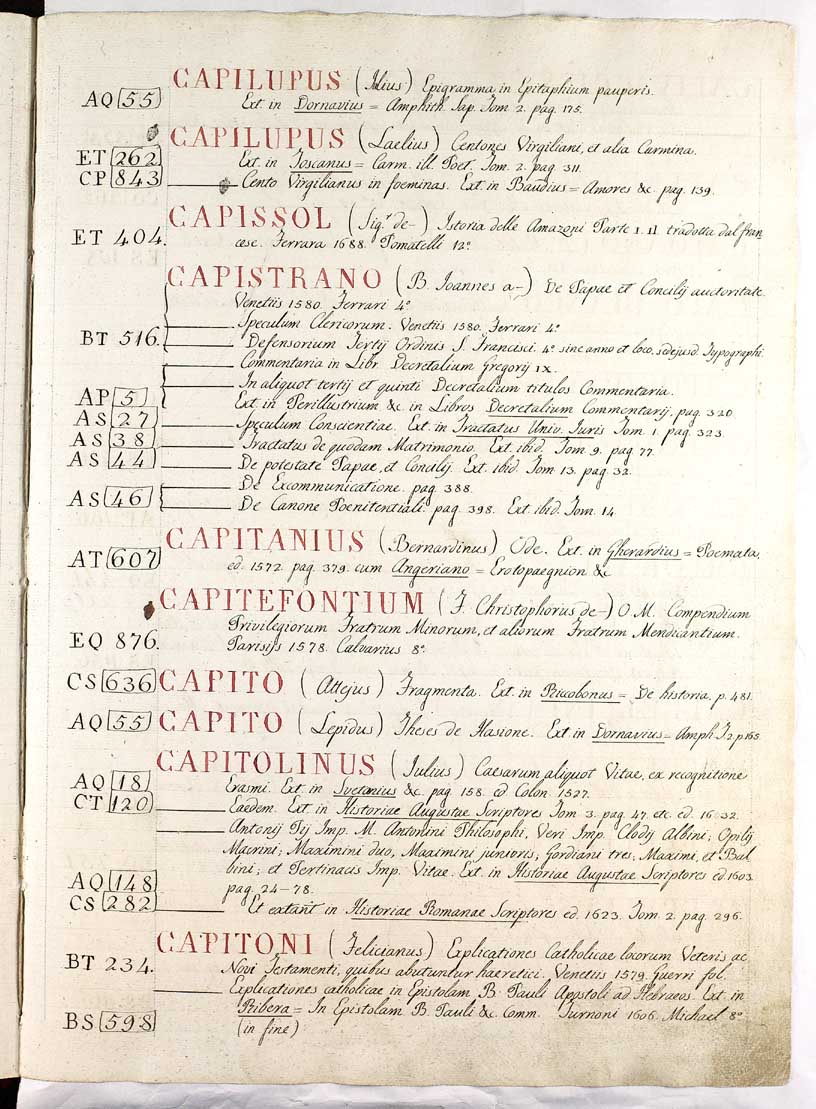 CAPILUPUS (Julius) Epigramma in Epitaphium pauperis.
AQ 55 Ext. in Dornavius = Amphith. Sap. Tom 2. pag. 175.
CAPILUPUS (Laelius) Centones Virgiliani, et alia Carmina.
ET 262 Ext. in Toscanus = Carm. ill. Poet. Tom. 2. pag. 311.
CP 843 Cento Virgilianus in foeminas. Ext. in Baudius = Amores &c. pag. 139.
CAPISSOL (Sig.r de-) Istoria delle Amazoni Parte I. II tradotta dal fran
ET 404. cese. Ferrara 1688. Pomatelli 12°
CAPISTRANO (B. Ioannes a-) De Papae et Concilij auctoritate.
Venetiis 1580. Ferrari 4°
Speculum Clericorum. Venetiis 1580. Ferrari 4°
BT 516. Defensorium Tertij Ordinis S. Francisci. 4° sine anno et loco, sed ejusd. Typographi.
Commentaria in Libr. Decretalium Gregorij IX.
In aliquot tertij et quinti Decretalium titulos Commentaria.
AP 5 Ext. in Perillustrium &c. in Libros Decretalium Commentarij. pag. 320
AS 27 Speculum Conscientiae. Ext. in Tractatus Univ. Iuris Tom 1. pag. 323.
AS 38 Tractatus de quodam Matrimonio. Ext. ibid. Tom 9. pag. 77.
AS 44 De potestate Papae, et Concilij. Ext. ibid Tom 13. pag. 32.
De Excommunicatione. pag. 388.
AS 46 De Canone Poenitentiali. pag. 398. Ext. ibid. Tom. 14
CAPITANIUS (Bernardinus) Ode. Ext. in Gherardius = Poemata.
AT 607 ed. 1572. pag. 379. cum Angeriano = Erotopaegnion &c
CAPITEFONTIUM (F. Christophorus de-) O M. Compendium
Privilegiorum Fratrum Minorum, et aliorum Fratrum Mendicantium.
EQ 876. Parisijs 1578. Calvarius 8°
CS 636 CAPITO (Attejus) Fragmenta. Ext. in Riccobonus = De historia. p. 481.
AQ 55 CAPITO (Lepidus) Theses de Hasione. Ext in Dornavius = Amph. T. 2. p. 165.
CAPITOLINUS (Julius) Caesarum aliquot Vitae, ex recognitione
AQ 18 Erasmi. Ext. in Svetonius &c. pag. 158. ed Colon. 1527.
CT 120 Eaedem. Ext. in Historiae Augustae Scriptores Tom 3. pag. 47. etc. ed. 1632.
Antonij Pij Imp. M. Antonini Philosophi, Veri Imp. Clodij Albini; Opilij
Macrini; Maximini duo, Maximini junioris, Gordiani tres; Maximi, et Bal
bini; et Pertinacis Imp. Vitae. Ext. in Historiae Augustae Scriptores ed. 1603.
AQ 148 pag. 24-78.
CS 282 Et extant in Historiae Romanae Scriptores ed. 1623. Tom. 2. pag. 296.
CAPITONI (Felicianus) Explicationes Catholicae locorum Veteris ac
BT 234. Novi Testamenti, quibus abutuntur haeretici. Venetiis 1579. Guerri fol.
Explicationes catholicae in Epistolam B. Pauli Apostoli ad Hebraeos. Ext. in
BS 598 Ribera = In Epistolam B. Pauli &c. Comm. Turnoni 1606. Michael 8°
(in fine)